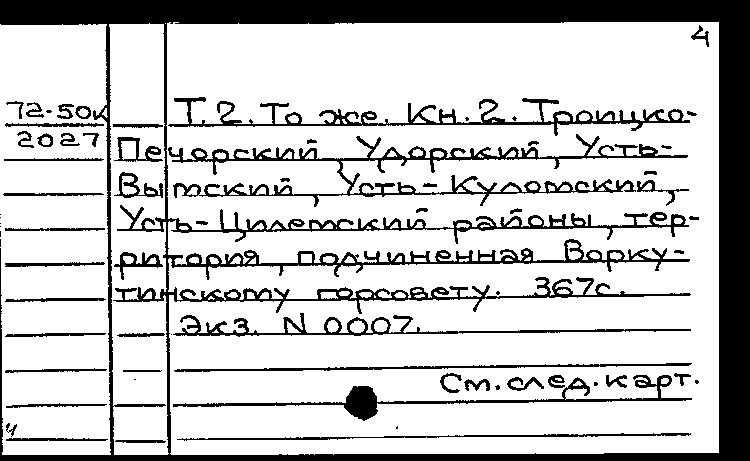 4
72-50к Т.2. То же. Кн.2. Троицко-
2027 Печорский, Удорский, Усть-
Вымский, Усть-Куломский,
Усть-Цилемский районы, тер-
ритория, подчиненная Ворку-
тинскому горсовету. 367с.
Экз. N 0007.
См. след. карт.